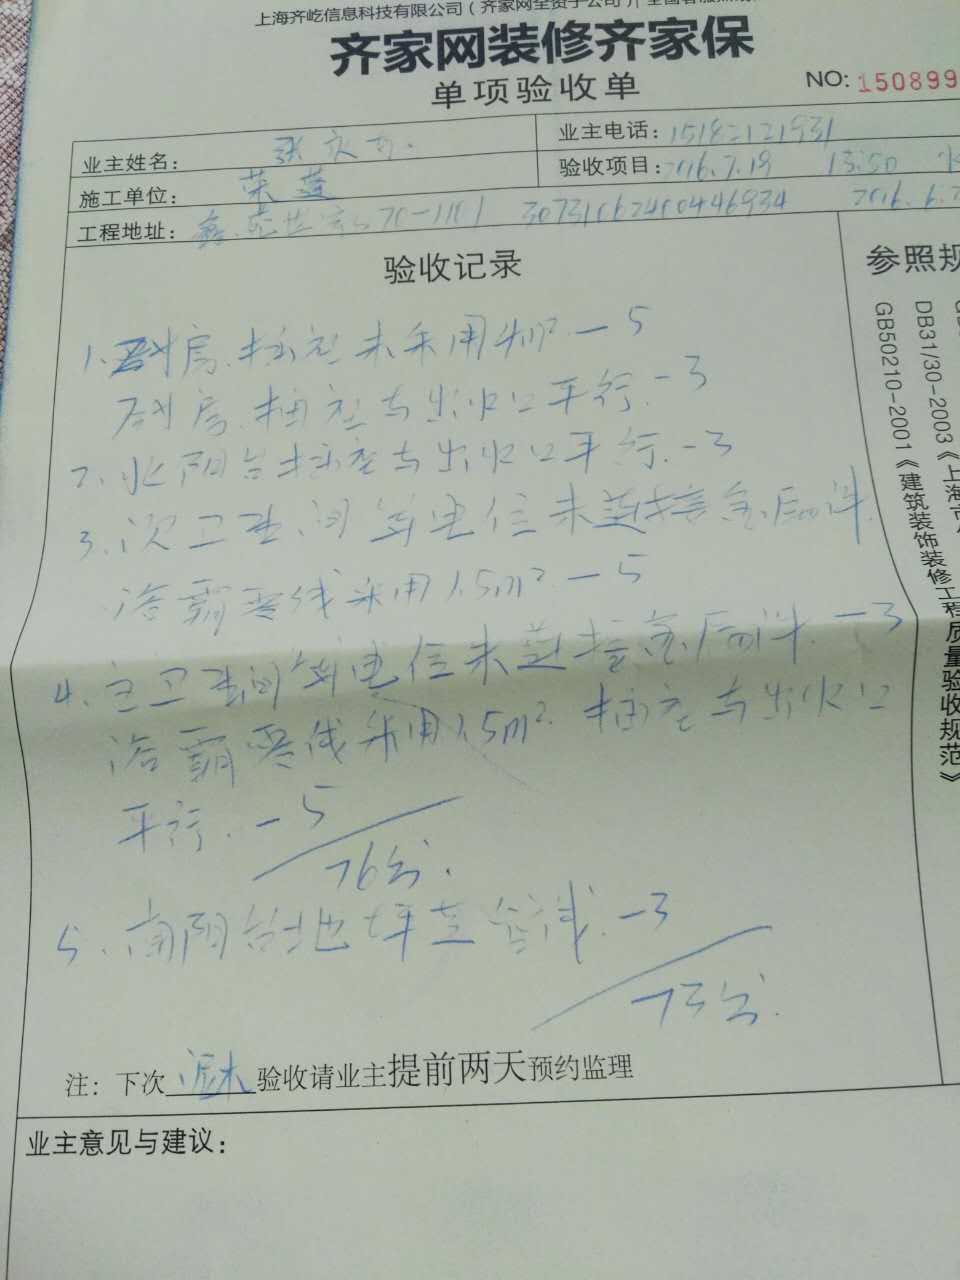 上海齐屹信息科技有限公司(齐家网全资子公司)
齐家网装修齐家保
单项验收单
NO: 150899
业主姓名: 张
业主电话: 15182121931
施工单位: 荣
验收项目: 2016.7.19 13:50
工程地址: 70-1101 30731062400446934 2016.6.2
验收记录
参照规
DB31/30-2003《上海市
GB50210-2001《建筑装饰装修工程质量验收规范》
1. 厨房.插座未采用4m². -5
厨房.插座与出水口平行. -3
2. 北阳台插座与出水口平行. -3
3. 次卫生间等电位未连接金属件.
浴霸零线采用1.5m². -5
4. 主卫生间等电位未连接金属件. -3
浴霸零线采用1.5m². 插座与出水口
平行. -5
76分.
5. 南阳台地坪 -3
73分.
注: 下次 泥木 验收请业主提前两天预约监理
业主意见与建议: